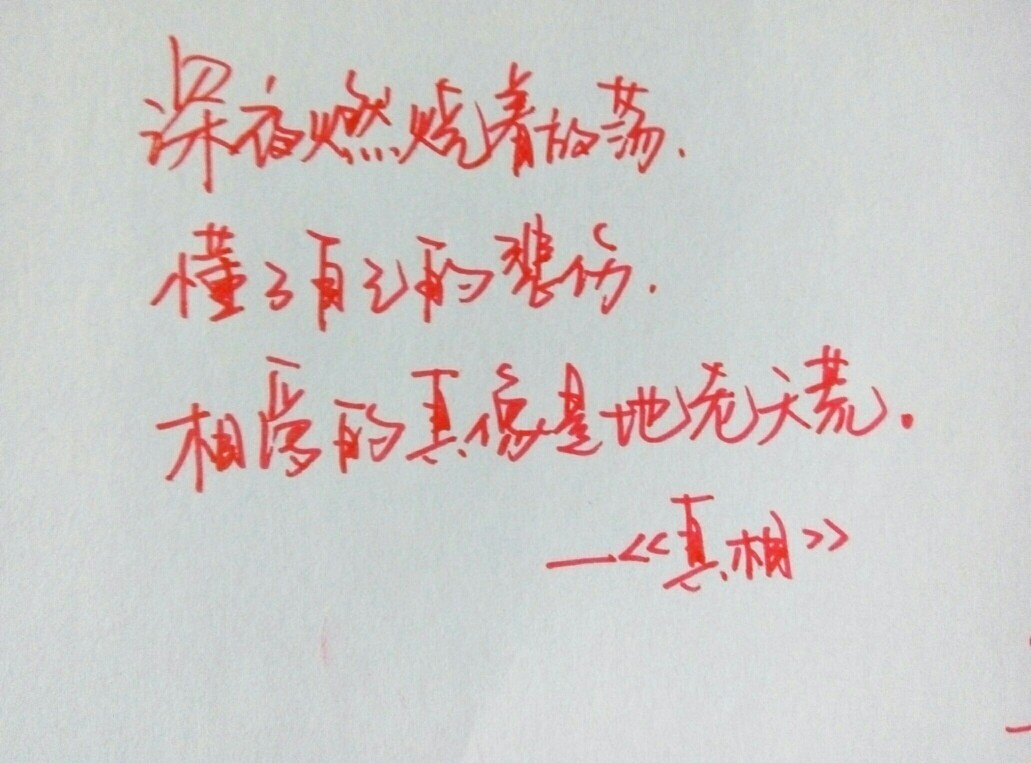 深夜燃烧着放荡.
懂了自己的悲伤.
相爱的真像是地老天荒.
—<<真相>>